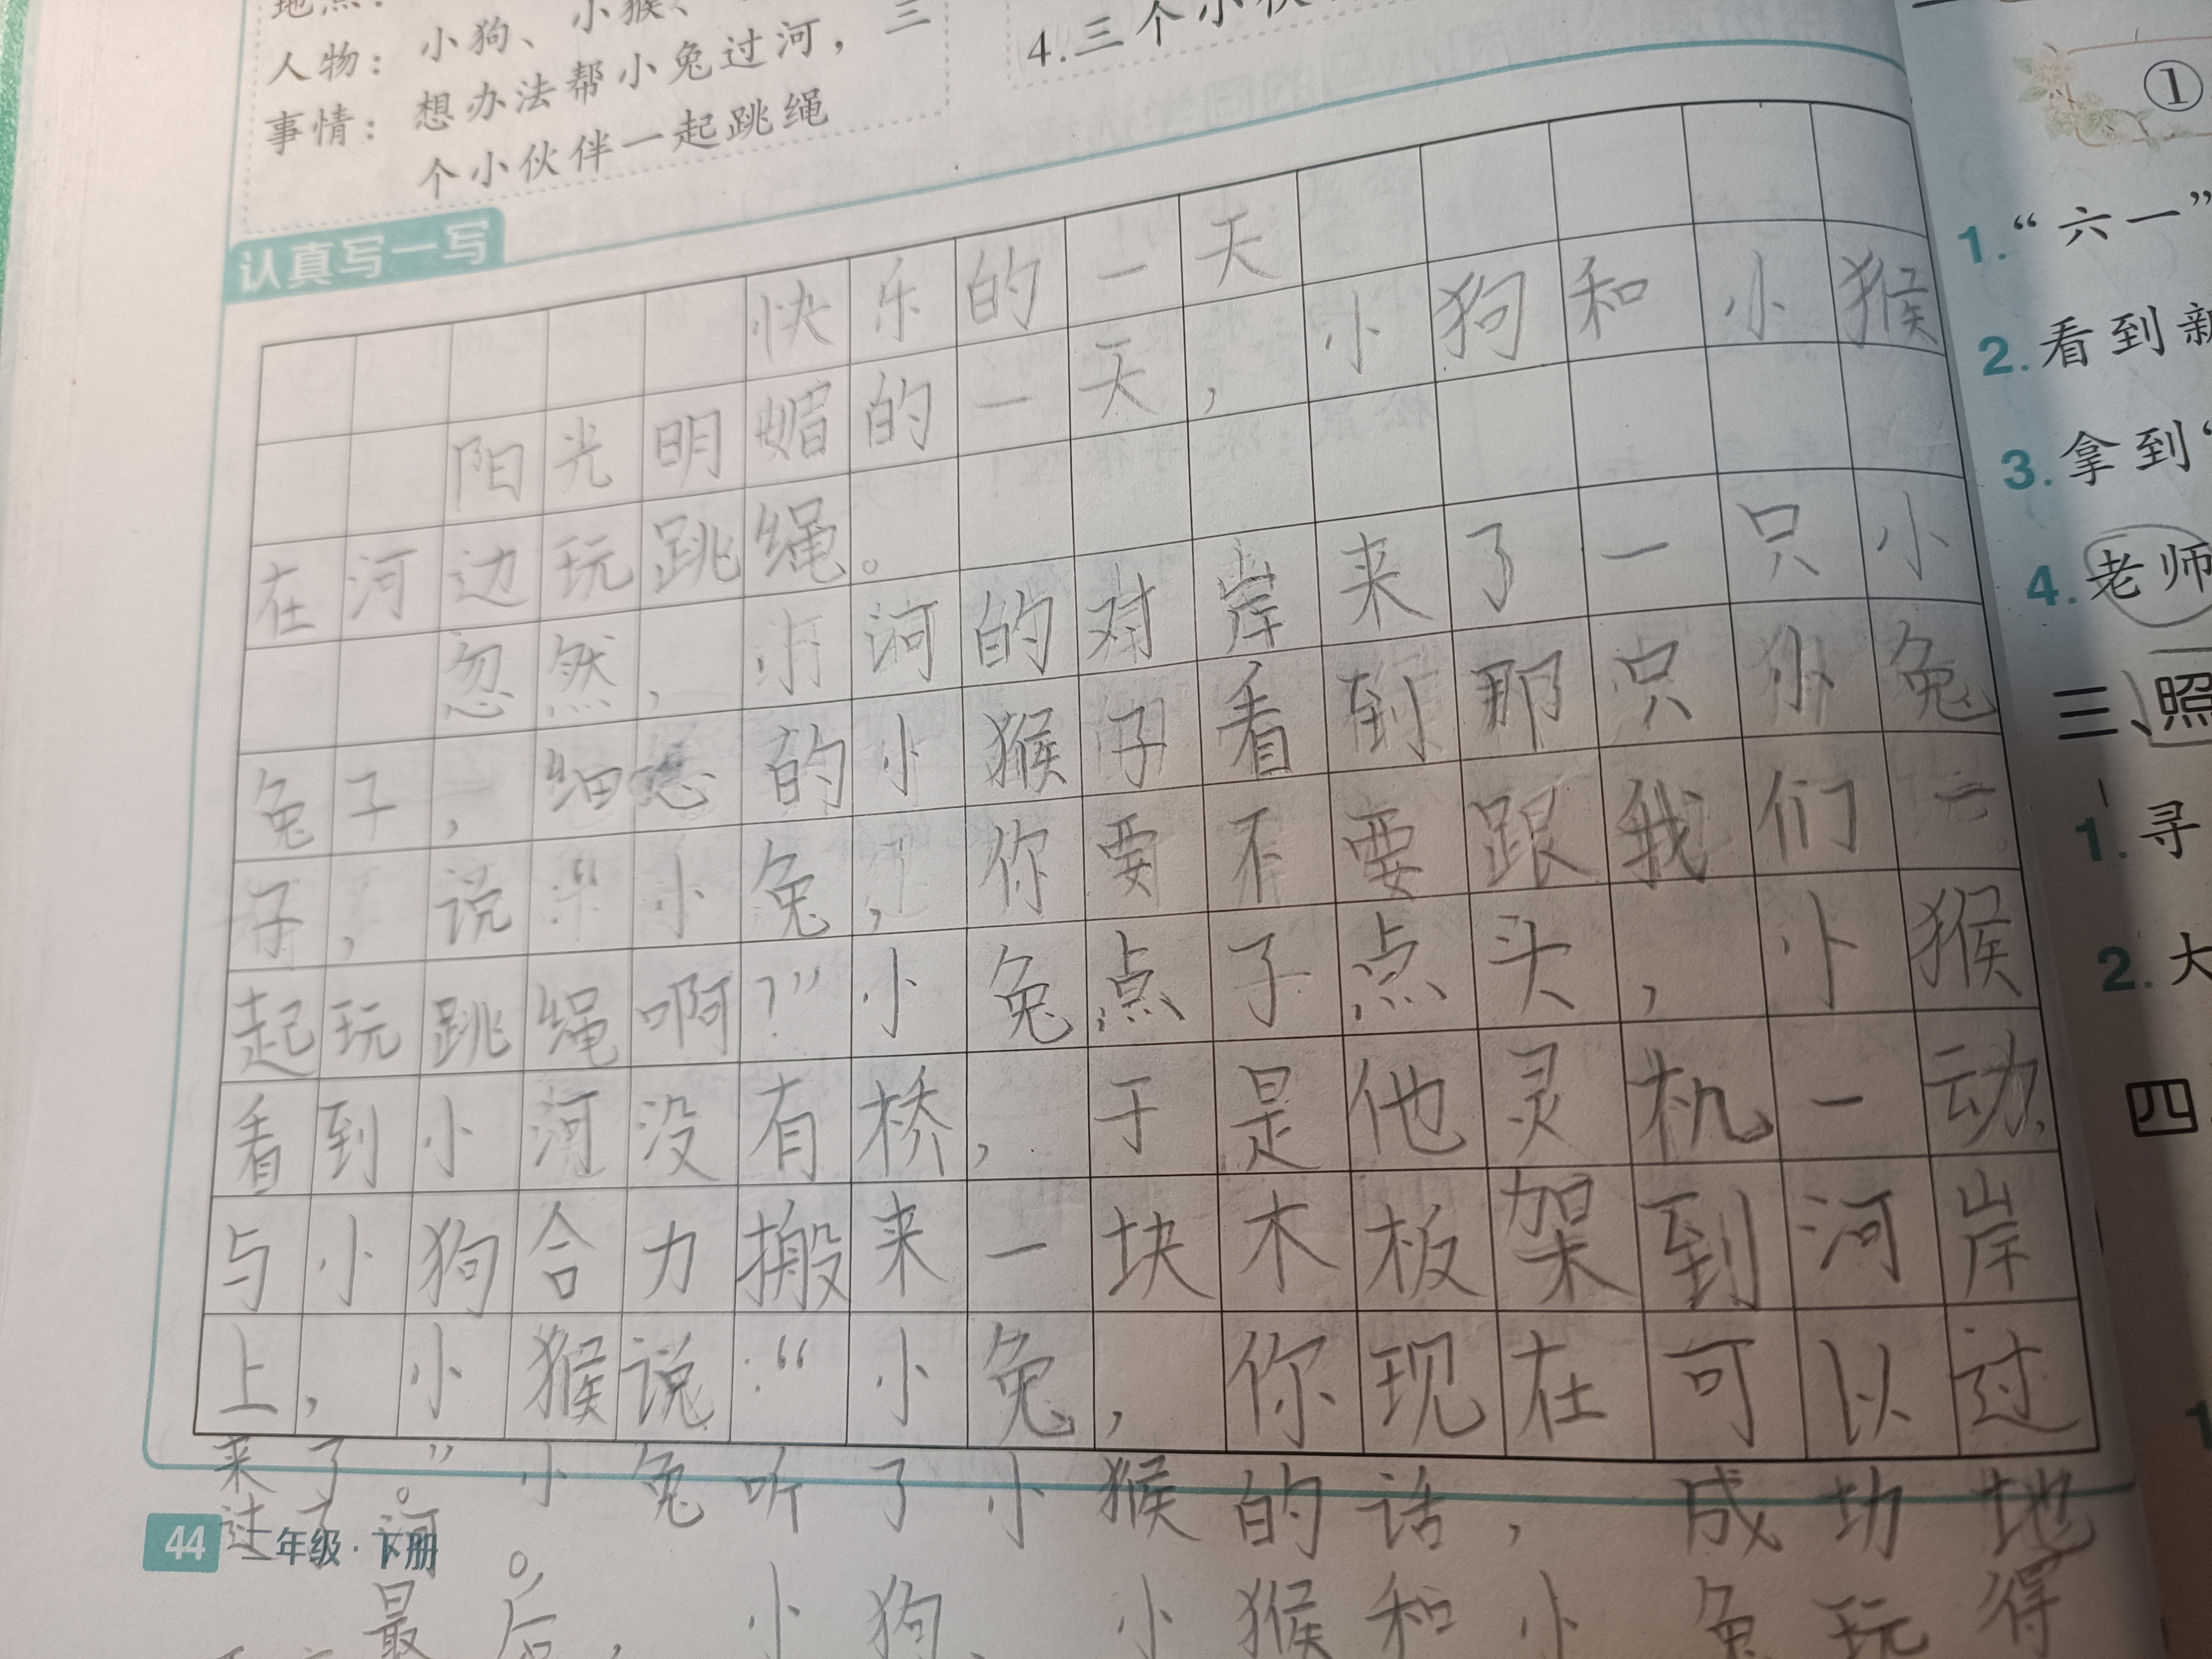 人物：小狗、小猴、
事情：想办法帮小兔过河，三
个小伙伴一起跳绳
4.三个小伙
认真写一写
快乐的一天
阳光明媚的一天，小狗和小猴
在河边玩跳绳。
忽然，小河的对岸来了一只小
兔子，细心的小猴子看到那只小兔
子，说：“小兔，你要不要跟我们一
起玩跳绳啊？”小兔点了点头，小猴
看到小河没有桥，于是他灵机一动，
与小狗合力搬来一块木板架到河岸
上，小猴说：“小兔，你现在可以过
来了。”小兔听了小猴的话，成功地
过了河。
最后，小狗、小猴和小兔玩得
44 二年级·下册
①
1.“六一”
2.看到新
3.拿到“
4.老师
三、照
1.寻
2.大
四